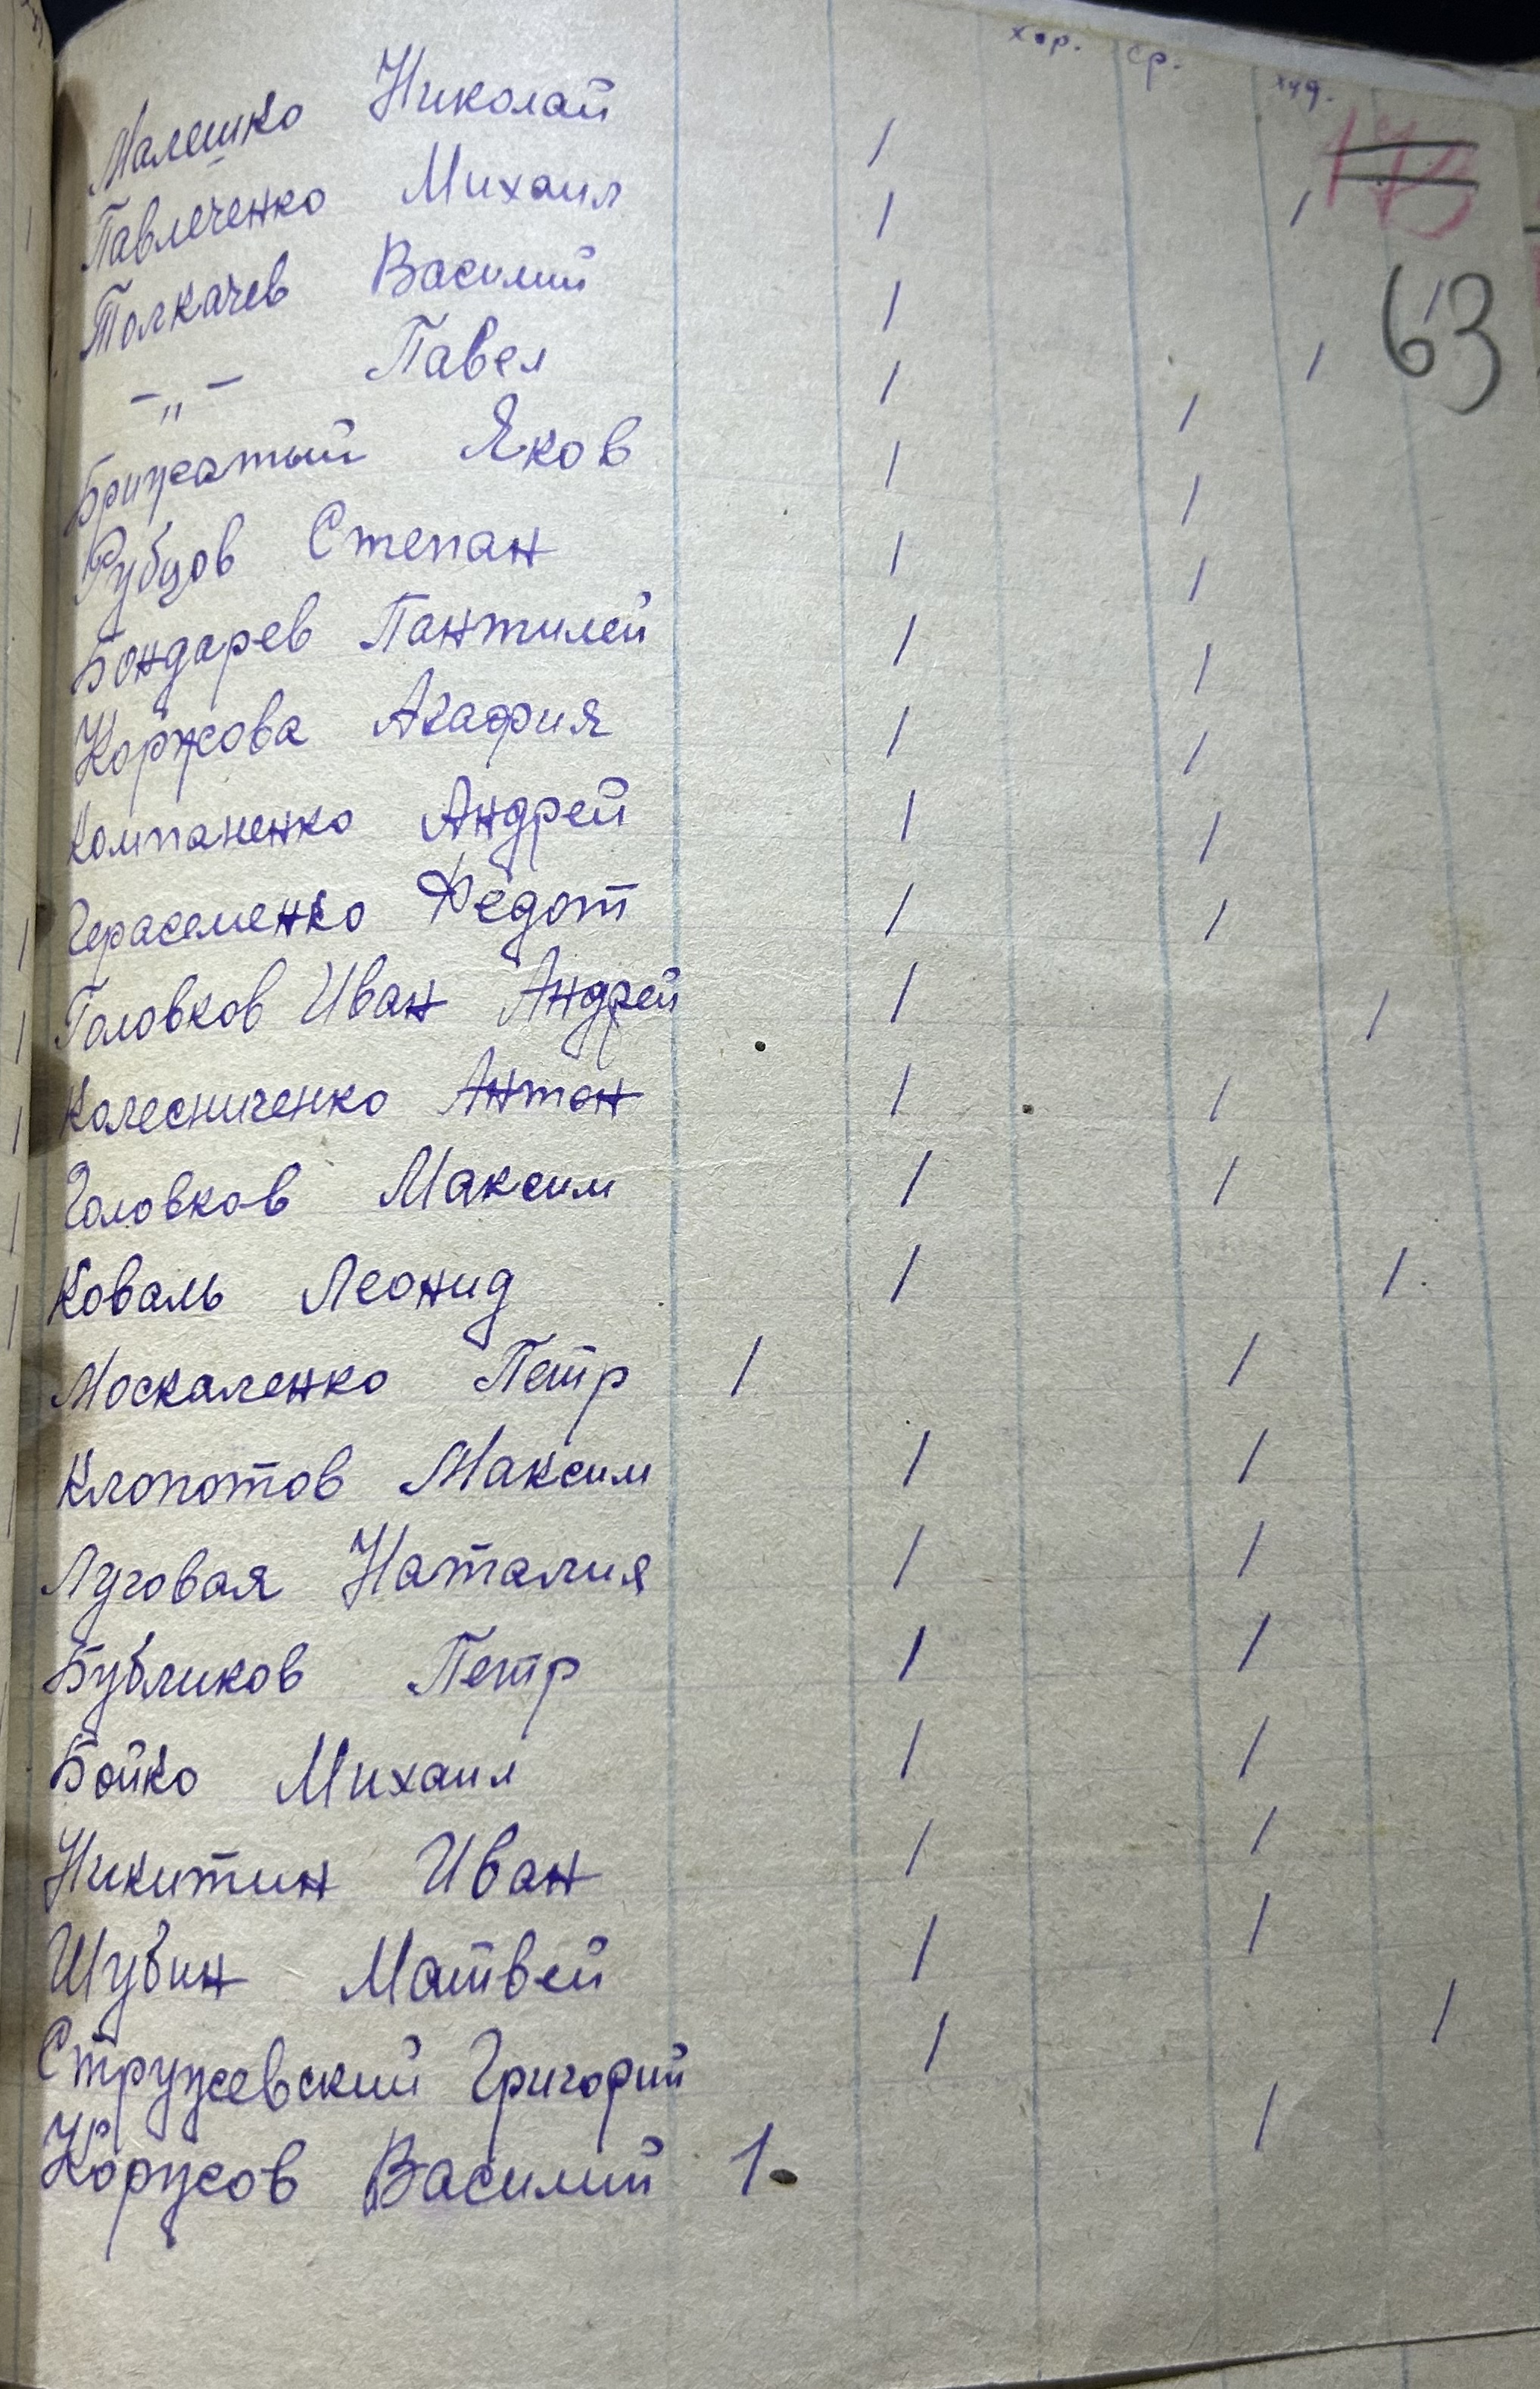 хор. ср. худ.
Малешко Николай /
173
Павлеченко Михаил / /
Толкачев Василий / /
63
-"- Павел / /
Брижатый Яков / /
Рубцов Степан / /
Бондарев Пантилей / /
Коржова Агафия / /
Компаненко Андрей / /
Герасеменко Федот / /
Головков Иван Андрей / /
Колесниченко Антон / /
Головков Максим / /
Коваль Леонид / /
Москаленко Петр / /
Клопотов Максим / /
Луговая Наталия / /
Бубликов Петр / /
Бойко Михаил / /
Никитин Иван / /
Шубин Матвей / /
Стружевский Григорий / /
Коржов Василий 1 /